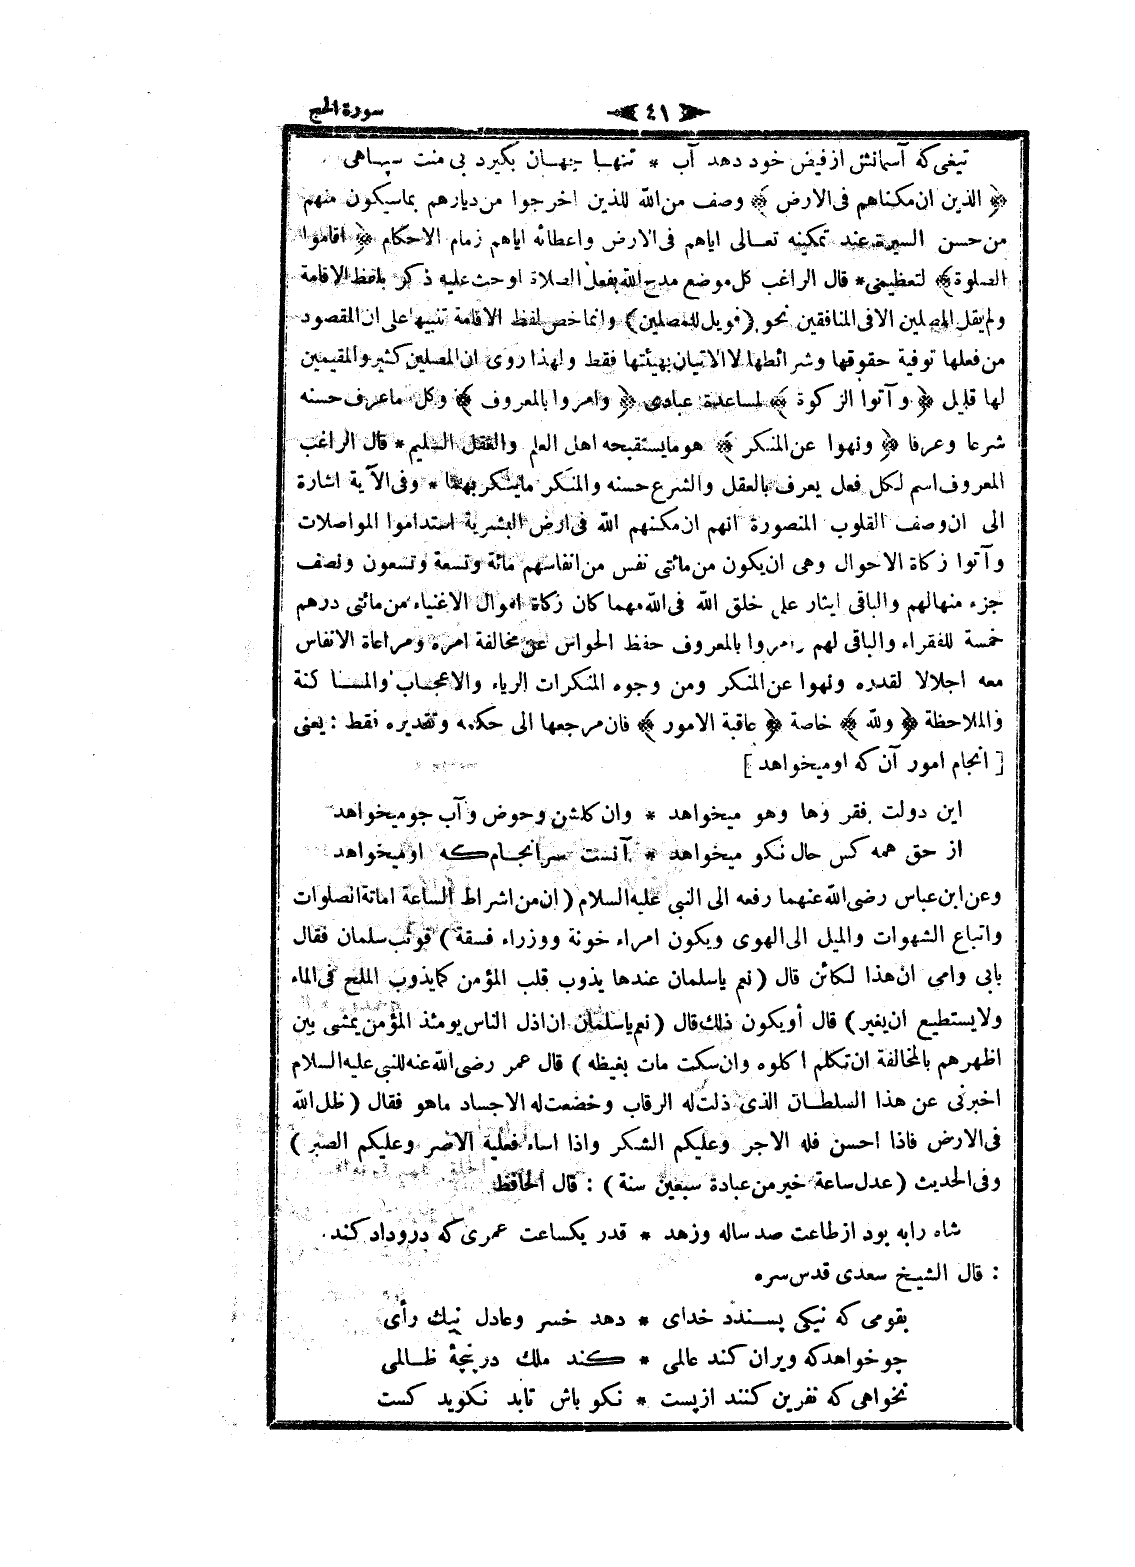 سورة الحج
٤١
تيغى كه آسمانش از فيض خود دهد آب * تنهـا جهـان بكيرد بى منت سپـاهى
﴿ الذين ان مكناهم فى الارض ﴾ وصف من الله للذين اخرجوا من ديارهم بماسيكون منهم
من حسن السيرة عند تمكينه تعـالى اياهم فى الارض واعطائه اياهم زمام الاحكام ﴿ اقاموا
الصلوة ﴾ لتعظيمى * قال الراغب كل موضع مدح الله بفعل الصلاة اوحث عليه ذكر بلفظ الاقامة
ولم يقل المصلين الا فى المنافقين نحو (فويل للمصلين) وانما خص لفظ الاقامة تنبيها على ان المقصود
من فعلها توفية حقوقها وشرائطها لا الاتيان بهيئتها فقط ولهذا روى ان المصلين كثير والمقيمين
لها قليل ﴿ وآتوا الزكوة ﴾ لمساعدة عبادى ﴿ وامروا بالمعروف ﴾ وكل ماعرف حسنه
شرعا وعرفا ﴿ ونهوا عن المنكر ﴾ هو مايستقبحه اهل العلم والعقل السليم * قال الراغب
المعروف اسم لكل فعل يعرف بالعقل والشرع حسنه والمنكر ماينكر بهما * وفى الآية اشارة
الى ان وصف القلوب المنصورة انهم ان مكنهم الله فى ارض البشرية استداموا المواصلات
وآتوا زكاة الاحوال وهى ان يكون من مائتى نفس من انفاسهم مائة وتسعة وتسعون ونصف
جزء منها لهم والباقى ايثار على خلق الله فى الله مهما كان زكاة اموال الاغنياء من مائتى درهم
خمسة للفقراء والباقى لهم وامروا بالمعروف حفظ الحواس عن مخالفة امره ومراعاة الانفاس
معه اجلالا لقدره ونهوا عن المنكر ومن وجوه المنكرات الرياء والاعجـاب والمسـا كنة
والملاحظة ﴿ ولله ﴾ خاصة ﴿ عاقبة الامور ﴾ فان مرجعها الى حكمه وتقديره فقط : يعنى
[ انجام امور آن كه او ميخواهد ]
اين دولت فقر وها وهو ميخواهد * وان كلشن وحوض وآب جو ميخواهد
از حق همه كس حال نكو ميخواهد * آنست سرانجـام كه او ميخواهد
وعن ابن عباس رضى الله عنهما رفعه الى النبى عليه السلام (ان من اشراط الساعة اماتة الصلوات
واتباع الشهوات والميل الى الهوى ويكون امراء خونة ووزراء فسقة) فوثب سلمان فقال
بابى وامى ان هذا لكائن قال (نعم ياسلمان عندها يذوب قلب المؤمن كما يذوب الملح فى الماء
ولا يستطيع ان يغير) قال أو يكون ذلك قال (نعم ياسلمان ان اذل الناس يومئذ المؤمن يمشى بين
اظهرهم بالمخالفة ان تكلم اكلوه وان سكت مات بغيظه) قال عمر رضى الله عنه للنبى عليه السلام
اخبرنى عن هذا السلطـان الذى ذلت له الرقاب وخضعت له الاجساد ماهو فقال (ظل الله
فى الارض فاذا احسن فله الاجر وعليكم الشكر واذا اساء فعليه الاصر وعليكم الصبر)
وفى الحديث (عدل ساعة خير من عبادة سبعين سنة) : قال الحافظ
شاه رابه بود از طاعت صد ساله وزهد * قدر يكساعت عمرى كه دروداد كند
: قال الشيخ سعدى قدس سره
بقومى كه نيكى پسندد خداى * دهد خسر وعادل نيك رأى
چو خواهد كه ويران كند عالمى * كند ملك در پنجۀ ظـالمى
نخواهى كه نفرين كنند از پست * نكو باش تابد نكويد كست